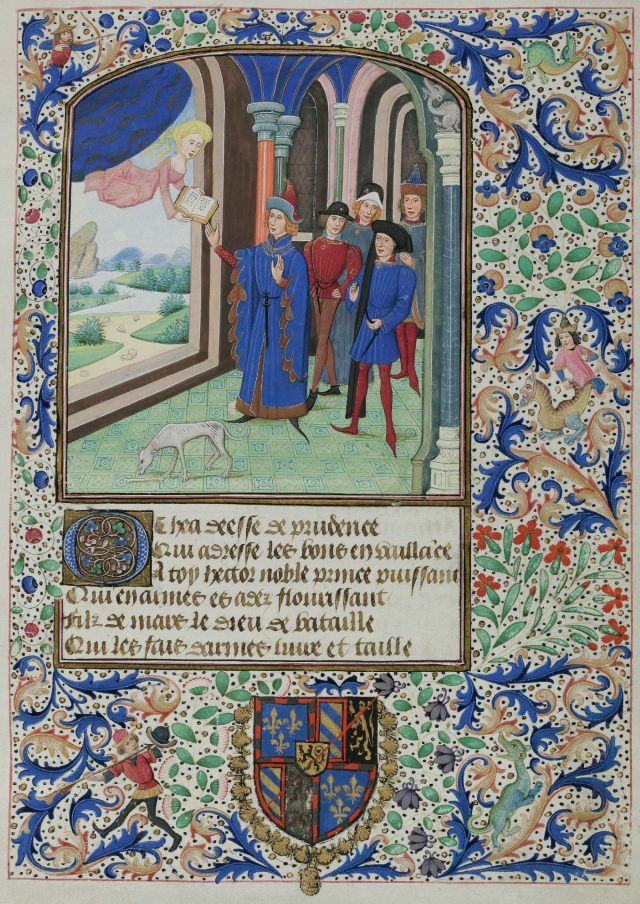 Othea deesse de prudence
Qui adresse les bons en vaillãce
A toy hector noble prince puissant
Qui en armes es adez flourissant
Filz de mars le dieu de bataille
Qui les fais darmes liure et taille